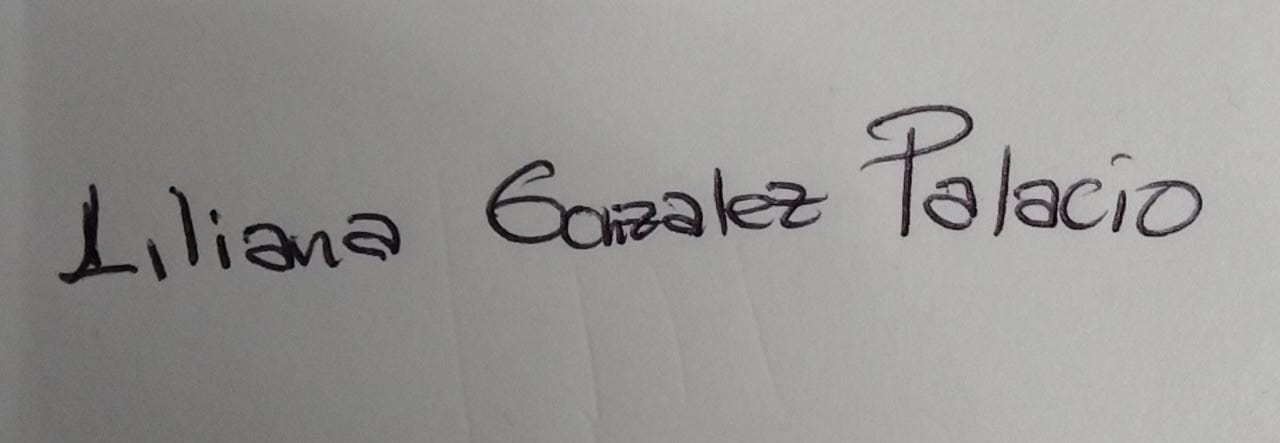 Liliana Gonzalez Palacio